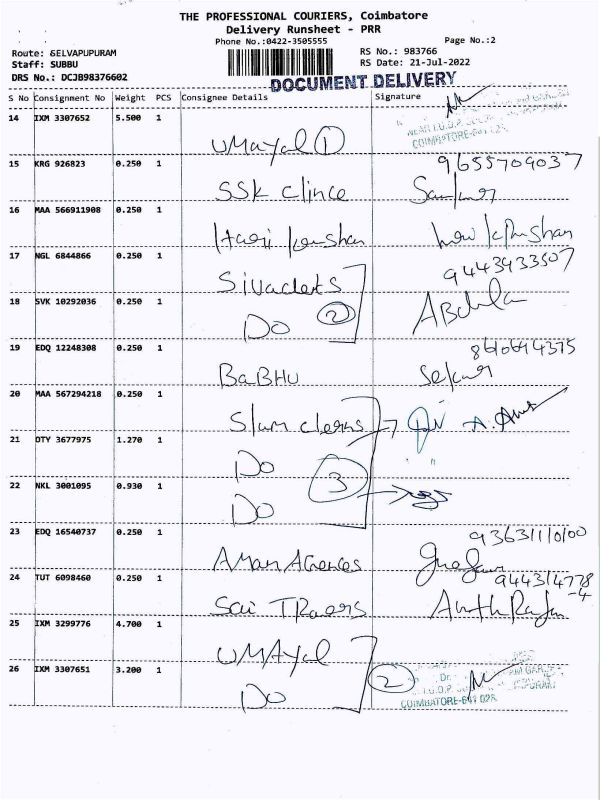 THE PROFESSIONAL COURIERS, Coimbatore
Delivery Runsheet - PRR
Phone No.:0422-3505555 Page No.:2
Route: SELVAPUPURAM RS No.: 983766
Staff: SUBBU RS Date: 21-Jul-2022
DRS No.: DCJB98376602
DOCUMENT DELIVERY
S No Consignment No Weight PCS Consignee Details Signature
14 IXM 3307652 5.500 1
COIMBATORE-641 026
UMayal 1
15 KRG 926823 0.250 1 9655709037
SSK Clince
16 MAA 566911908 0.250 1
Hari
17 NGL 6844866 0.250 1 9443933507
18 SVK 10292036 0.250 1
Do 2
19 EDQ 12248308 0.250 1
BaBHU Sekar
20 MAA 567294218 0.250 1
21 OTY 3677975 1.270 1
Do 3
22 NKL 3001095 0.930 1
Do
23 EDQ 16540737 0.250 1
Aman Agences
24 TUT 6098460 0.250 1
Sai
25 IXM 3299776 4.700 1
UMAyal
26 IXM 3307651 3.200 1 2
Do COIMBATORE-641 026